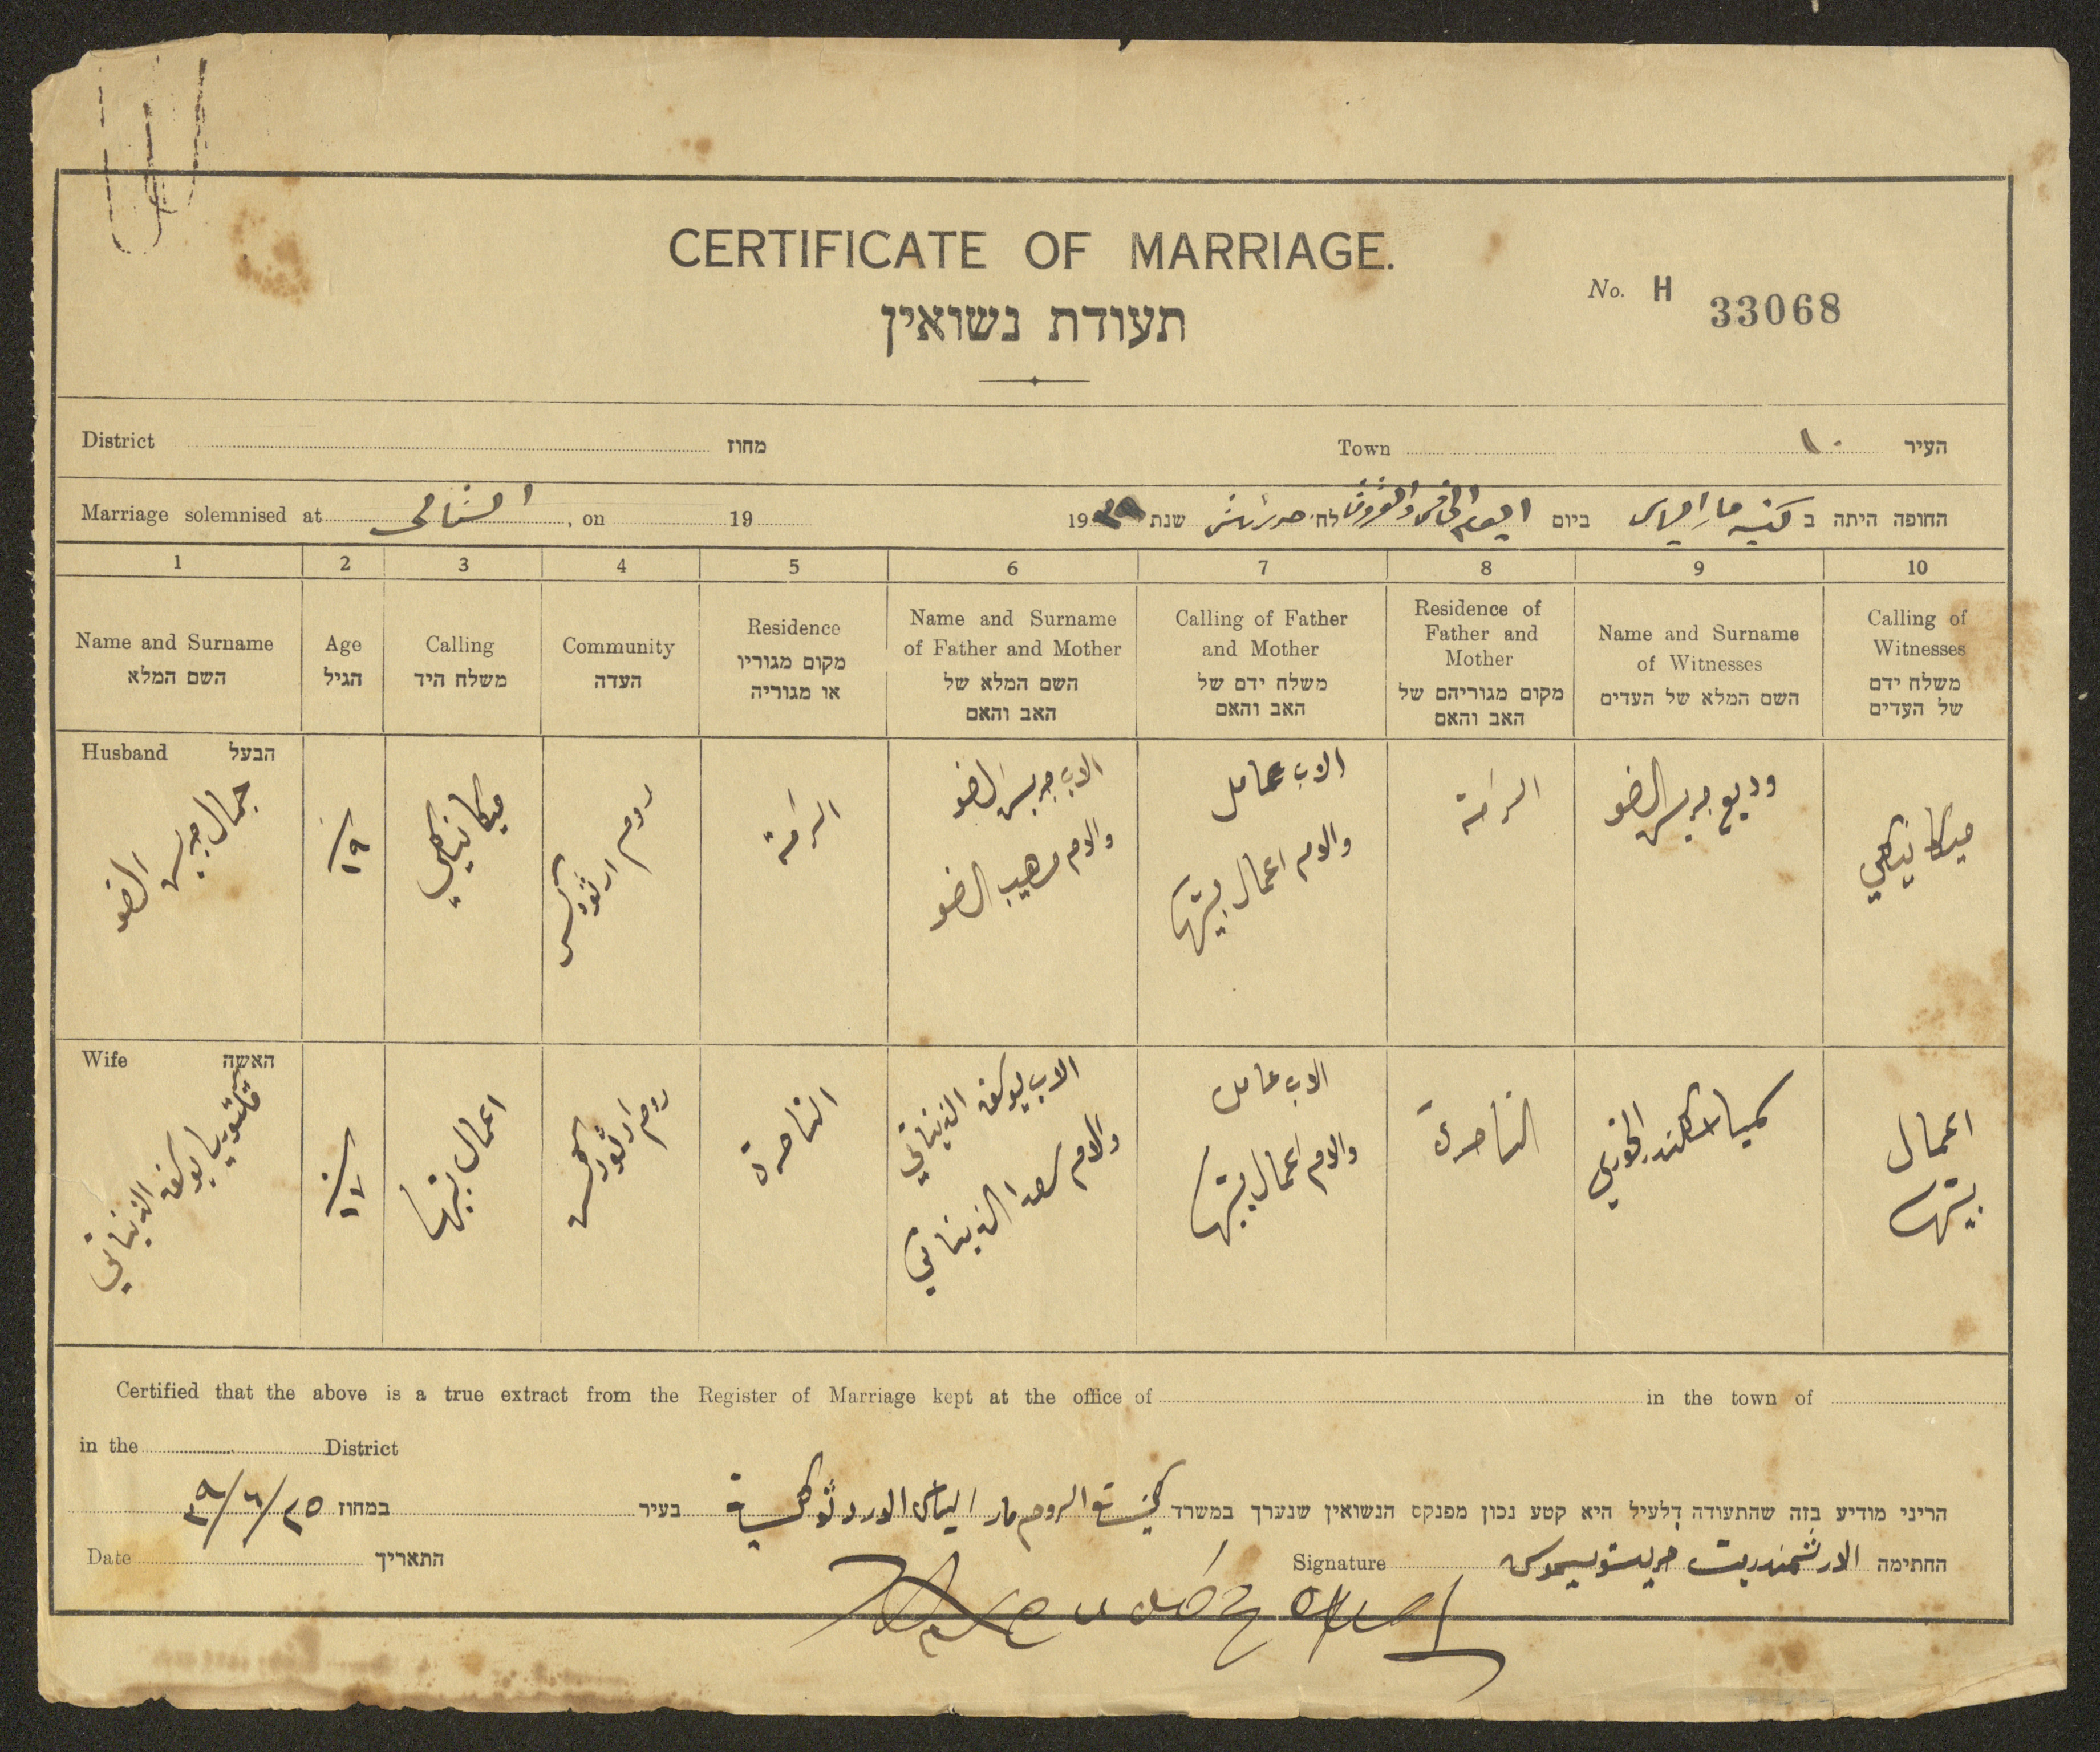 CERTIFICATE OF MARRIAGE.
תעודת נשואין
No. H 33068
District מחוז Town העיר
Marriage solemnised at الشمالي , on 19
החופה היתה ב كنيسة مار الياس ביום اليوم الخامس والعشرون לח׳ حزيران שנת 1939
1 2 3 4 5 6 7 8 9 10
Name and Surname
השם המלא
Age
הגיל
Calling
משלח היד
Community
העדה
Residence
מקום מגוריו
או מגוריה
Name and Surname
of Father and Mother
השם המלא של
האב והאם
Calling of Father
and Mother
משלח ידם של
האב והאם
Residence of
Father and
Mother
מקום מגוריהם של
האב והאם
Name and Surname
of Witnesses
השם המלא של העדים
Calling of
Witnesses
משלח ידם
של העדים
Husband הבעל
جمال جريس الضو
١٩
ميكانيكي
روم ارثوذكس
الرامة
الاب جريس الضو
والام وهيبه الضو
الاب عامل
والام اعمال بيتها
الرامة
وديع جريس الضو
ميكانيكي
Wife האשה
فكتوريا يوسف الديناتي
١٧
اعمال بيتها
روم ارثوذكس
الناصرة
الاب يوسف الديناتي
والام سعدا الديناتي
الاب عامل
والام اعمال بيتها
الناصرة
اسكندر الخوري
اعمال
بيتها
Certified that the above is a true extract from the Register of Marriage kept at the office of in the town of
in the District
הריני מודיע בזה שהתעודה דלעיל היא קטע נכון מפנקס הנשואין שנערך במשרד كنيسة الروم مار الياس الارثوذكسية בעיר במחוז ٢٥/٦/٣٩
החתימה الارشمندريت خريستوسيموس Signature התאריך Date